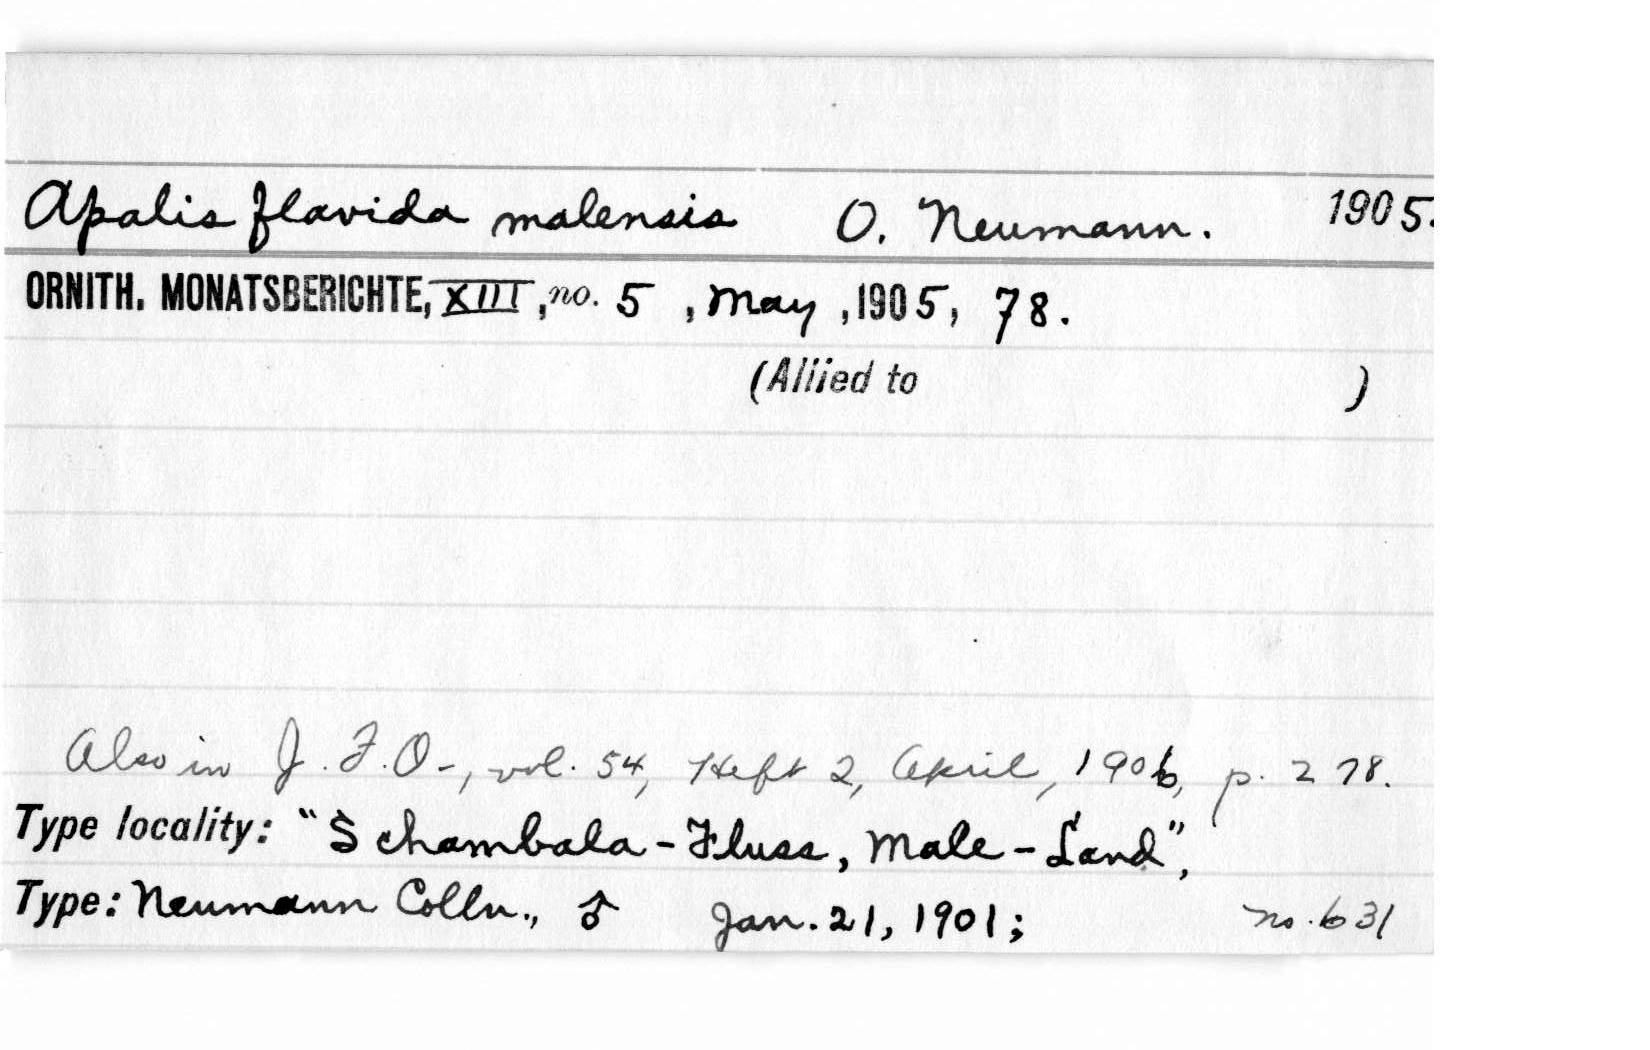 Apalis flavida malensis O. Neumann. 1905.
ORNITH. MONATSBERICHTE, XIII, no. 5, May, 1905, 78.
(Allied to )
Also in J. F. O., vol. 54, Heft 2, April, 1906, p. 278.
Type locality: "Schambala-Fluss, Male-Land",
Type: Neumann Colln., ♂ Jan. 21, 1901; no. 631